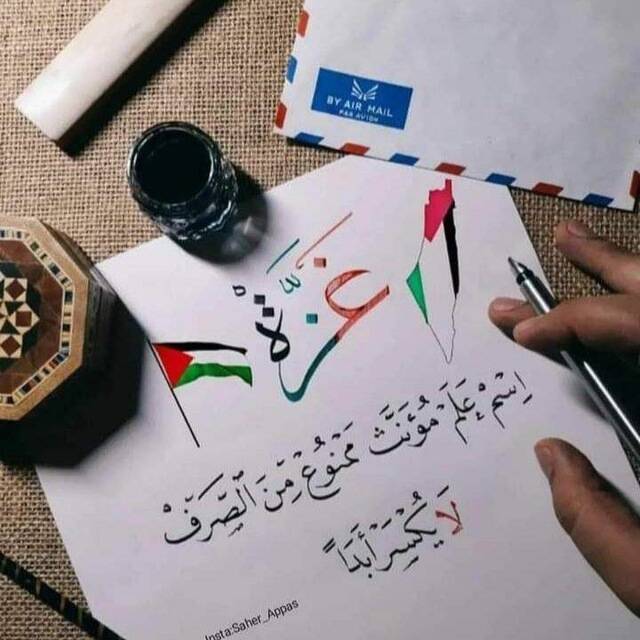 BY AIR MAIL
PAR AVION
غزَّةُ
اِسْمُ عَلَمٍ مُؤَنَّثٌ مَمْنُوعٌ مِنَ الصَّرفِ
لَا يُكْسَرُ أَبَدًا
Insta:Saher_Appas